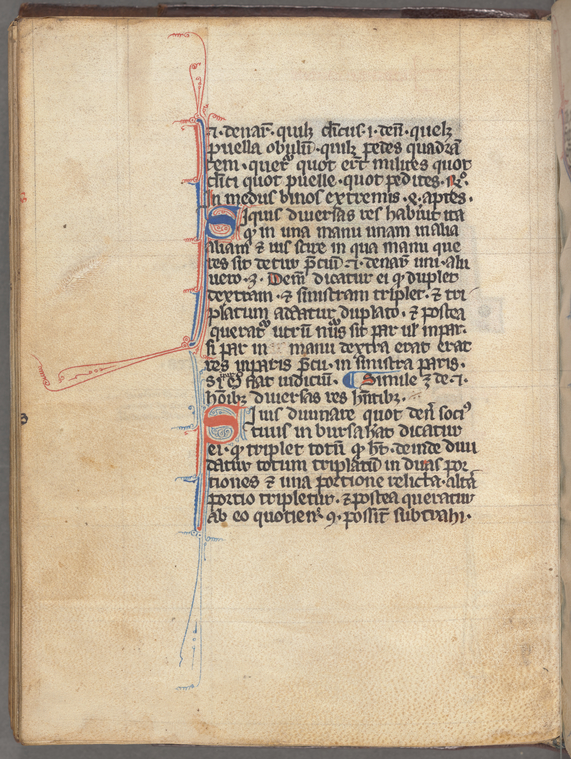 ⁊·denar̄·quilꝫ cl̄icus·i·den̄·quelꝫ
puella obulū·quilꝫ pedes quadrā
tem·querͬ quot erāt milites quot
cl̄ici quot puelle·quot pedites·
In medus binos extremis·q̨·aptes·
Siquis diuersas res habuīt ita
qͥ in una manu unam in alia
aliam ⁊ uis scire in qua manu que
res sit detur p̄ciū·denar̄ uni·alii
uero·Dem̄ dicatur ei qͥ duplet
dextram·⁊ sinistram triplet·⁊ tri
platum addatur duplato·⁊ postea
queratͬ utrū nūs sit par ul̓ impar·
si par in manu dextra erat erat
res inparis p̄cii·in sinistra paris·
fiat iudiciū·Simile ꝫ de·
hoīibꝫ diuersas res hn̄tibꝫ·
Si uis diuinare quot den̄ soci᷒
tuus in bursa hat dicatur
ei·qͥ triplet totū qͥ ht̄·deinde diui
datur totum triplatū in duas por
tiones ⁊ una portione relicta·altā
portio tripletur·⁊ postea queratur
ab eo quotienˢ·9·possīt subtrahi·